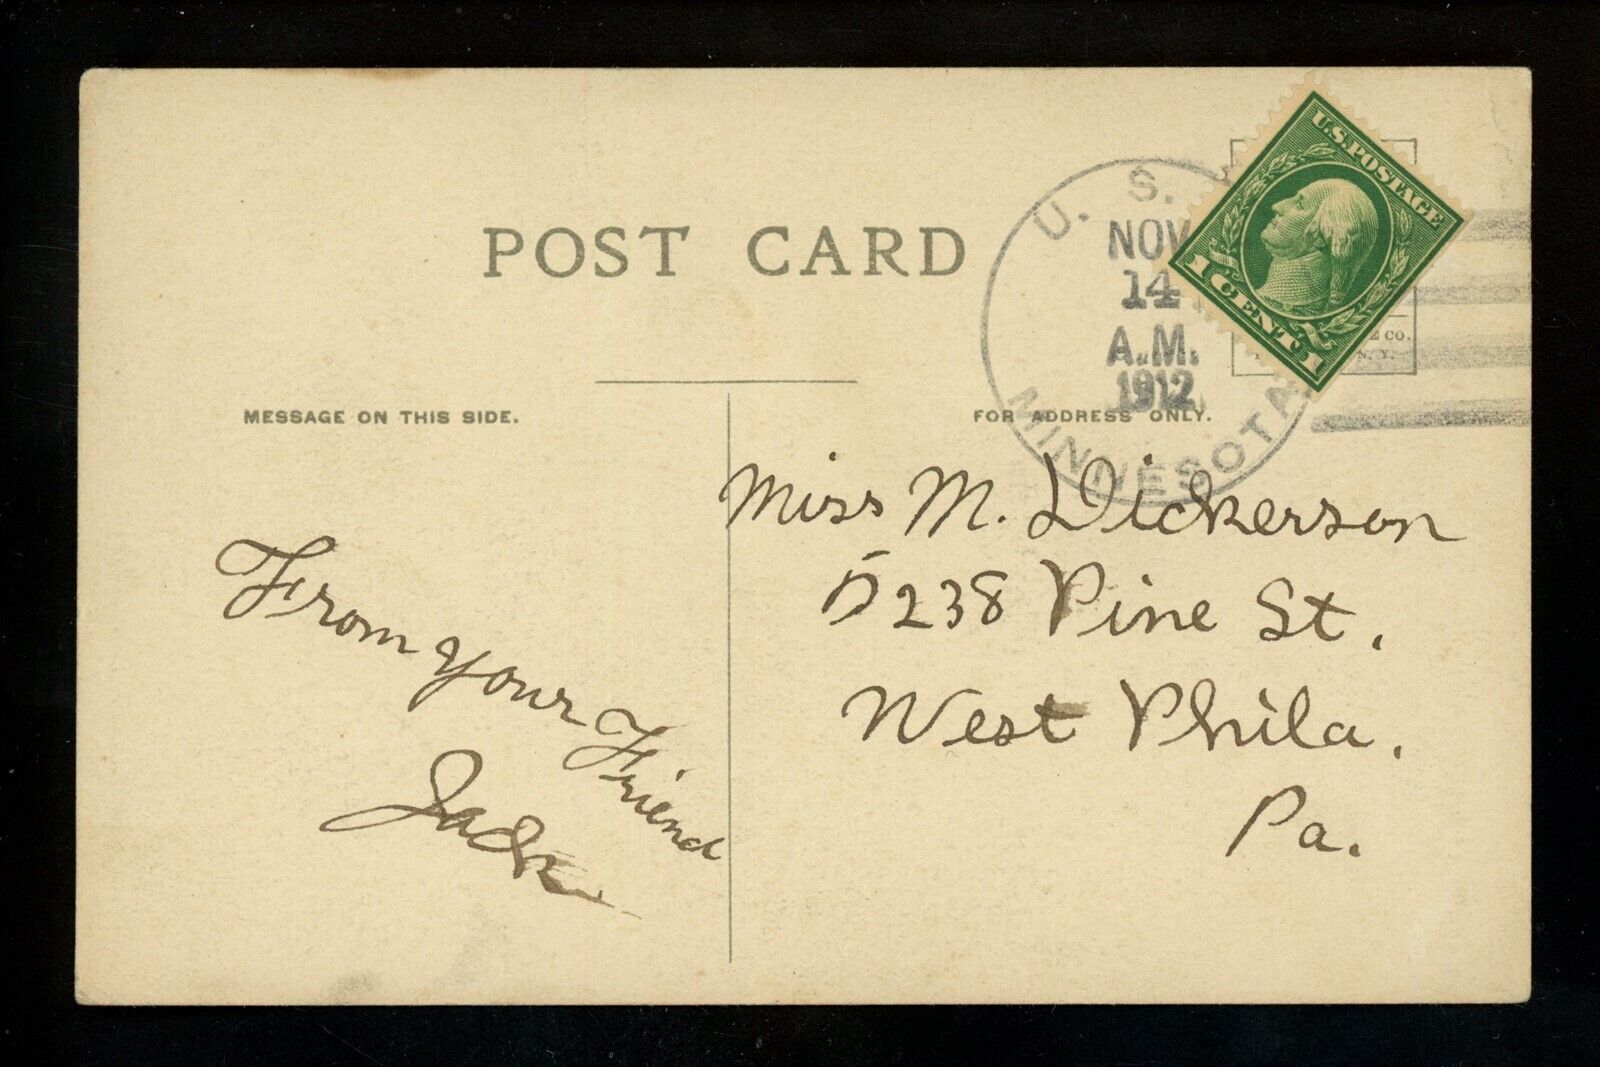 POST CARD
U. S.
NOV
14
A.M.
1912
MINNESOTA
U.S. POSTAGE
1 CENT 1
CO.
N. Y.
MESSAGE ON THIS SIDE.
FOR ADDRESS ONLY.
Miss M. Dickerson
5238 Pine St.
West Phila.
Pa.
From your Friend
Jack